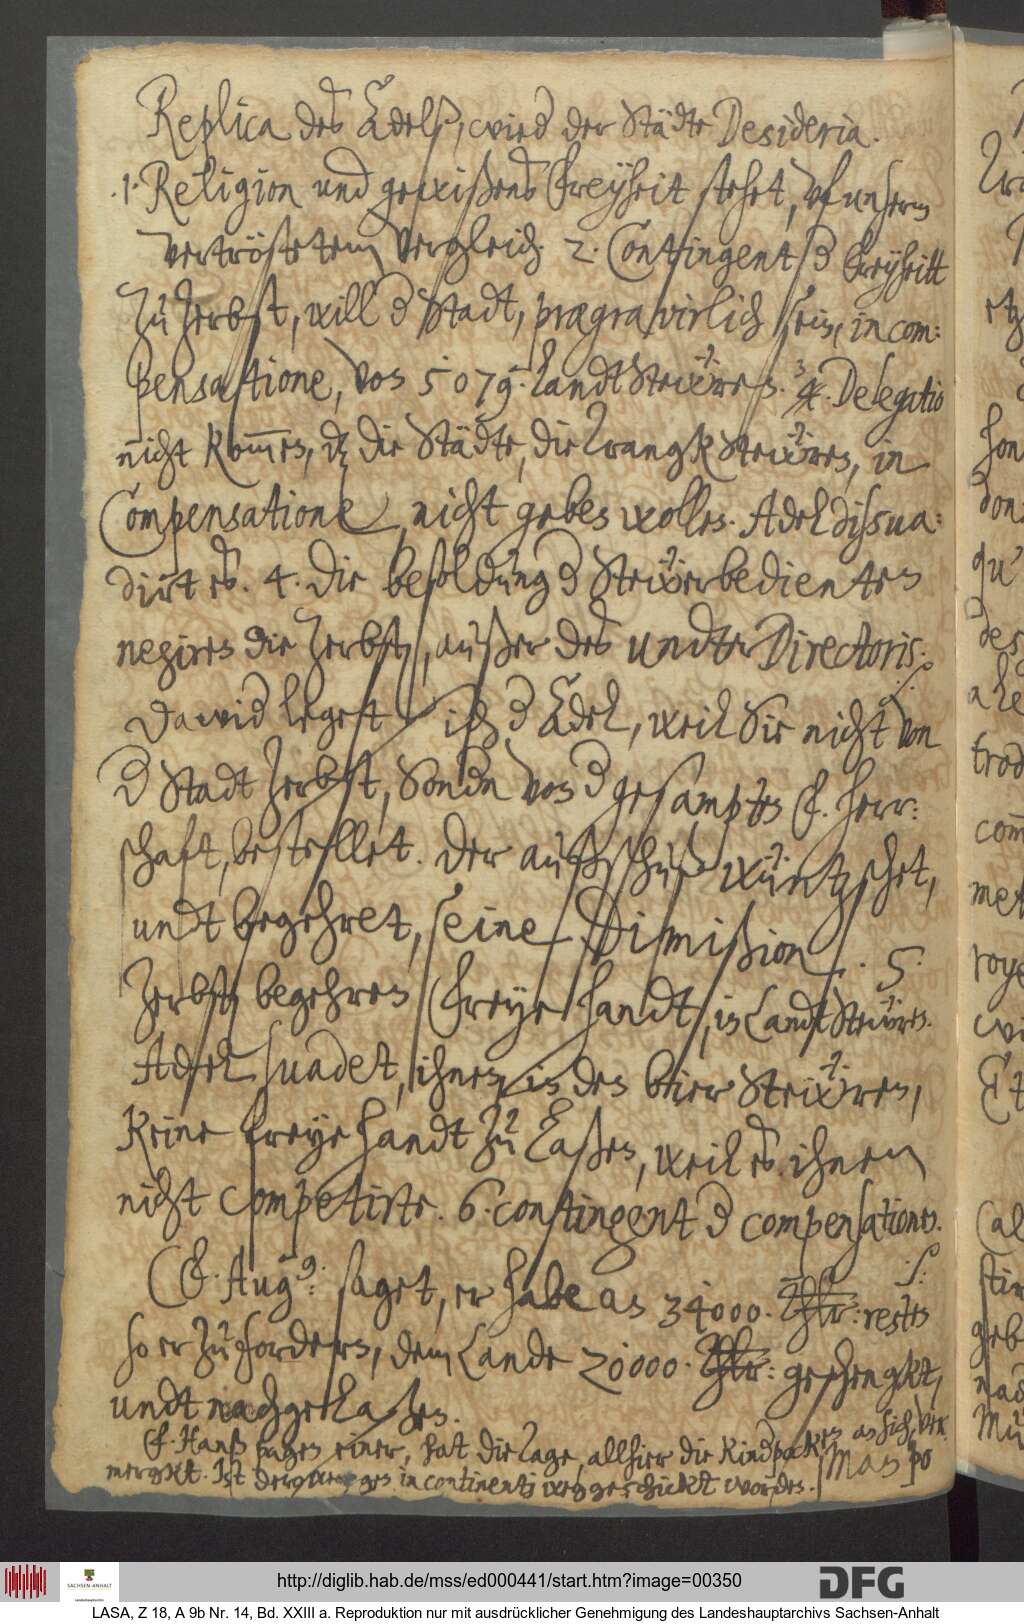 Replica des Adelß, wied der Städte Desideria.
.1. Religion und gewißens Freyheit stehet, uf unserm
vertröstetem Vergleich. 2. Contingent d Freyheitt
Zu Zerbst, will d Stadt, prægravirlich sein, in com:
pensatione, von 5079. LandtStewren. 3. Delegatio
nicht kommen, die Städte, die Tranck Stewren, in
Compensatione, nicht geben wollen. Adel dissua:
dirt es. 4. Die besoldung d Stewerbedienten
negiren die Zerbster, außer des undter Directoris.
Dawid leget sich d Adel, weil Sie nicht von
d Stadt Zerbst, sondn von d gesampten f. herr:
schaft, bestellet. Der außschuß wüntzschet,
undt begehret, seine Dimißion. 5.
Zerbster begehren freye handt, in LandtStewren.
Adel suadet, ihnen in den bier Stewren,
Keine freye handt zu laßen, weil es ihnen
nicht competirte. 6. contingent d compensationes.
F. Aug9: saget, er habe an 34000. Thlr: resten
so er zu fordern, dem Lande 20000. Thlr: geschengkt,
undt nachgelaßen.
F. Hanß einer, hat die Tage, allhier die Kindpocken an sich, ver
merckt. Ist in continenti weggeschickt worden. Man
http://diglib.hab.de/mss/ed000441/start.htm?image=00350
DFG
SACHSEN-ANHALT
LASA, Z 18, A 9b Nr. 14, Bd. XXIII a. Reproduktion nur mit ausdrücklicher Genehmigung des Landeshauptarchivs Sachsen-Anhalt